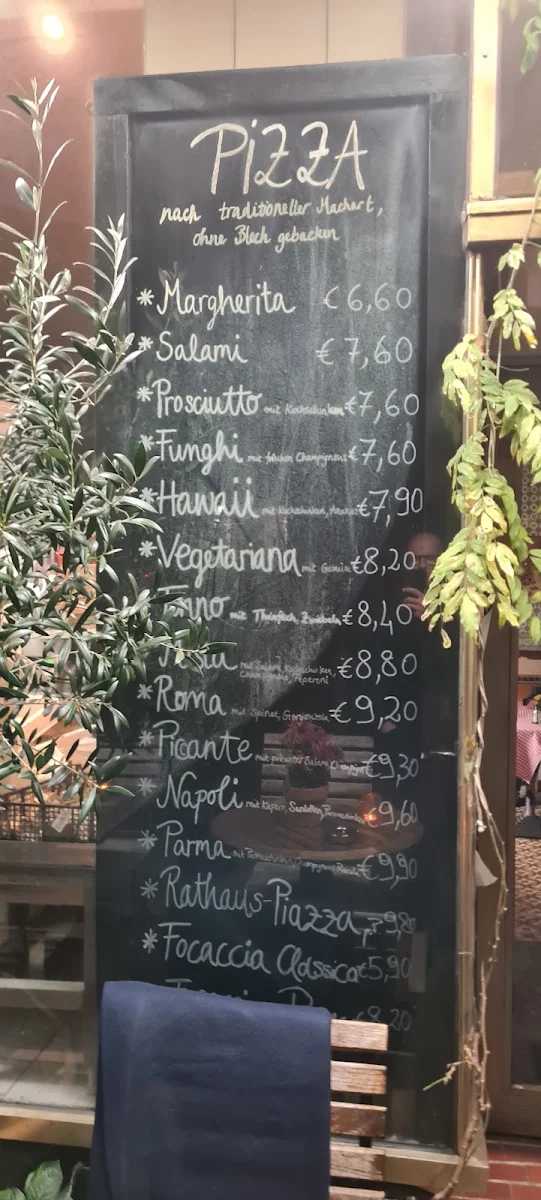 PiZZA
nach traditioneller Machart,
ohne Blech gebacken
* Margherita € 6,60
* Salami € 7,60
* Prosciutto mit Kochschinken €7,60
* Funghi mit frischen Champignons €7,60
* Hawaii mit Kochschinken, Ananas €7,90
* Vegetariana mit Gemüse €8,20
mit Thunfisch, Zwiebeln €8,40
mit Salami, Kochschinken, €8,80
Champignons, Peperoni
* Roma mit Spinat, Gorgonzola €9,20
* Picante mit pikanter Salami, Champignons €9,30
* Napoli mit Kapern, Sardellen, €9,60
* Parma mit Parmaschinken, €9,90
* Rathaus-Piazza
* Focaccia Classica €5,90
€8,20